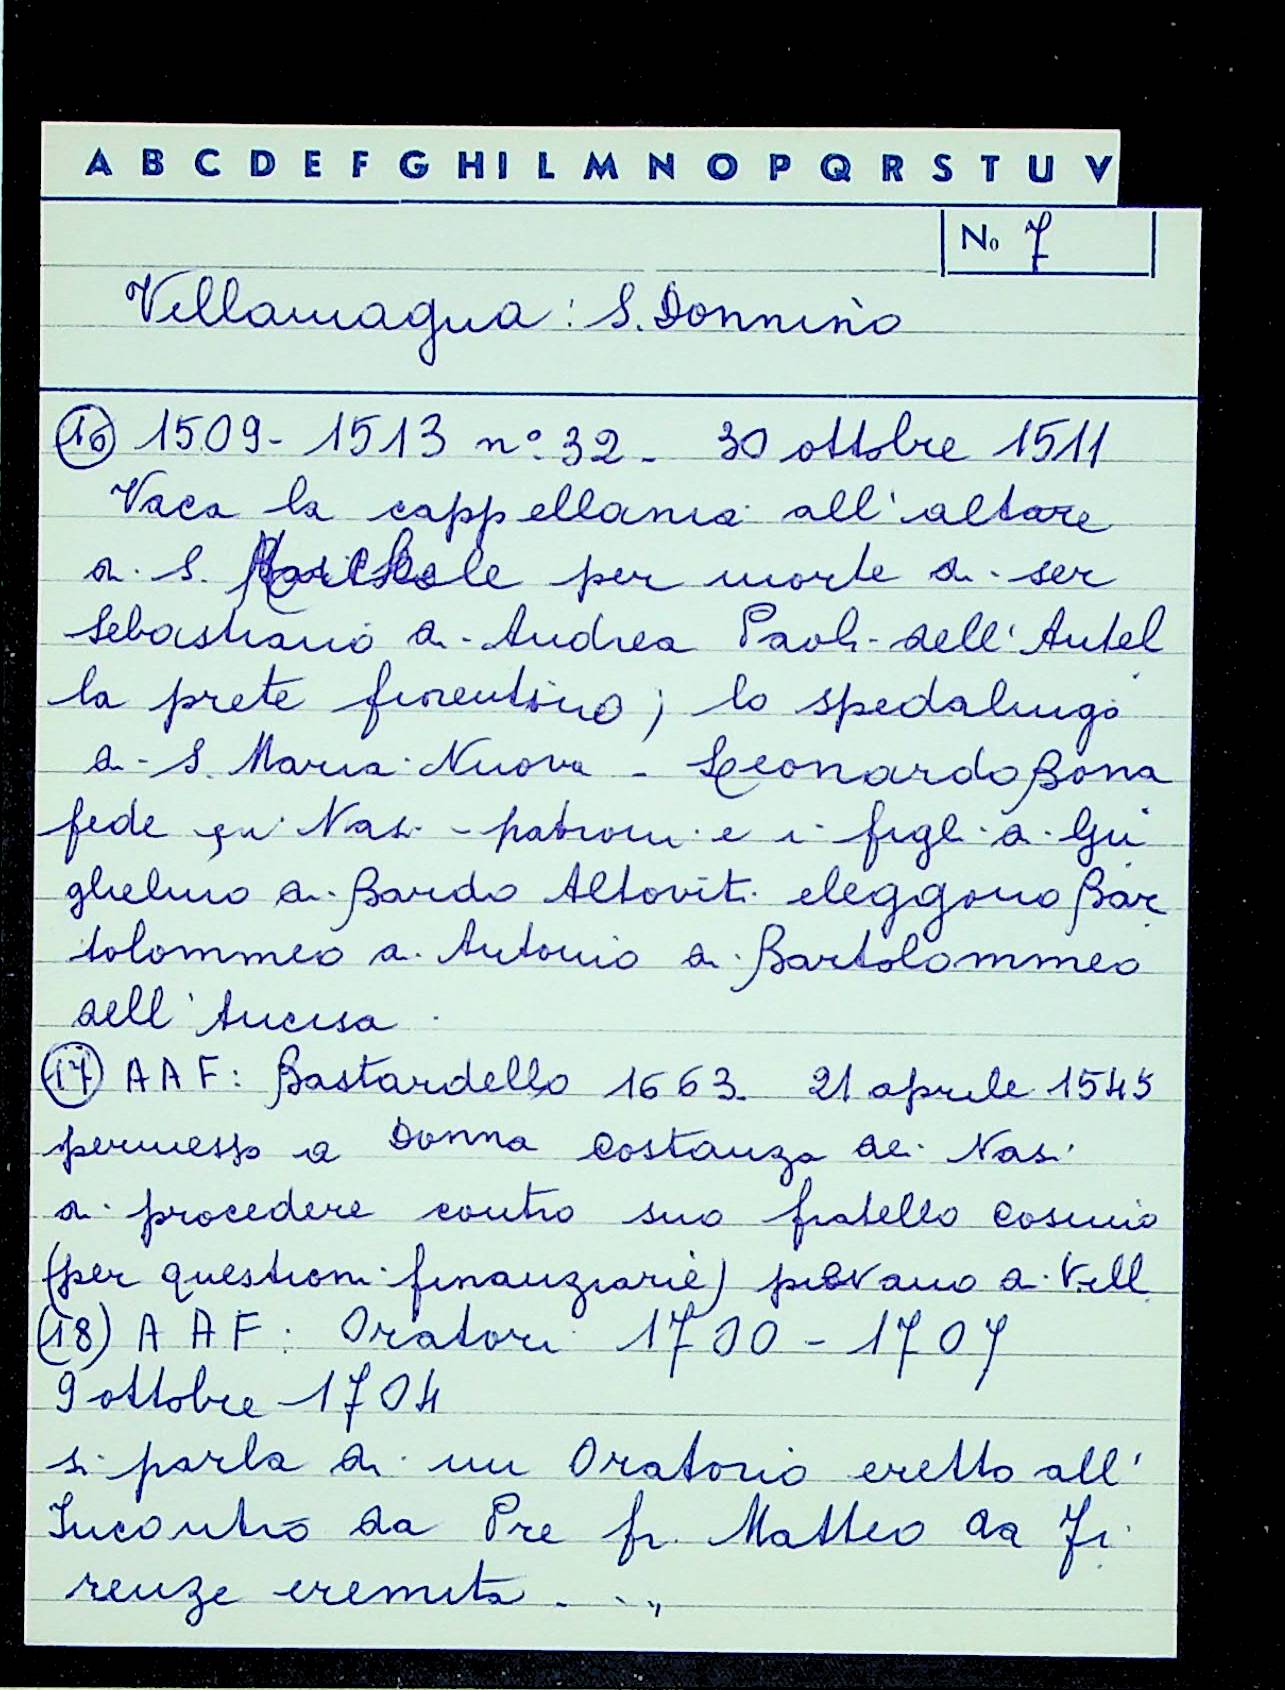 A B C D E F G H I L M N O P Q R S T U V
No 7
Villamagna: S. Donnino
16 1509-1513 n° 32 - 30 ottobre 1511
Vaca la cappellania all'altare
di S. Michele per morte di ser
Sebastiano di Andrea Paoli dell'Antel
la prete fiorentino; lo spedalingo
di S. Maria Nuova - Leonardo Bona
fede i Nasi - patroni e i figli di Gu
glielmo di Bardo Altoviti eleggono Bar
tolommeo di Antonio di Bartolommeo
dell'Ancisa
17 AAF: Bastardello 1663 - 21 aprile 1545
permesso a Donna Costanza dei Nasi
di procedere contro suo fratello Cosimo
(per questioni finanziarie) pievano di Vill.
(18) AAF: Oratori 1700 - 1707
9 ottobre 1704
si parla di un Oratorio eretto all'
Incontro da Pre fr. Matteo da Fi
renze eremita . . "